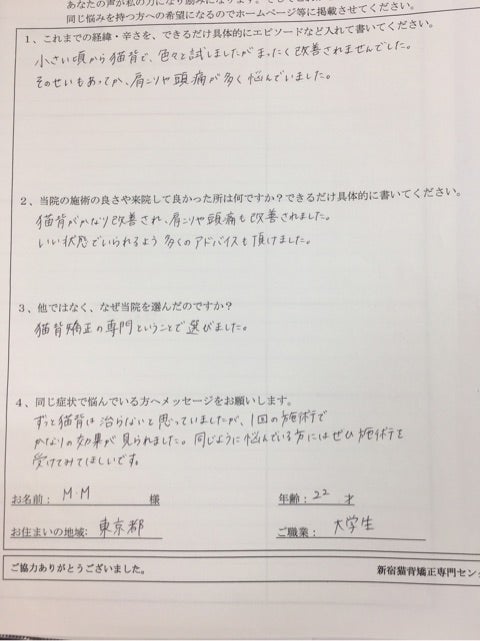 あなたの声が私の力になり励みになります。
同じ悩みを持つ方への希望になるのでホームページ等に掲載させてください。
1、これまでの経緯・辛さを、できるだけ具体的にエピソードなど入れて書いてください。
小さい頃から猫背で、色々と試しましたがまったく改善されませんでした。
そのせいもあってか、肩こりや頭痛が多く悩んでいました。
2、当院の施術の良さや来院して良かった所は何ですか？できるだけ具体的に書いてください。
猫背がかなり改善され、肩こりや頭痛も改善されました。
いい状態でいられるよう多くのアドバイスも頂けました。
3、他ではなく、なぜ当院を選んだのですか？
猫背矯正の専門ということで選びました。
4、同じ症状で悩んでいる方へメッセージをお願いします。
ずっと猫背は治らないと思っていましたが、1回の施術で
かなりの効果が見られました。同じように悩んでいる方にはぜひ施術を
受けてみてほしいです。
お名前： M.M 様 年齢：22 才
お住まいの地域: 東京都 ご職業： 大学生
ご協力ありがとうございました。 新宿猫背矯正専門セン